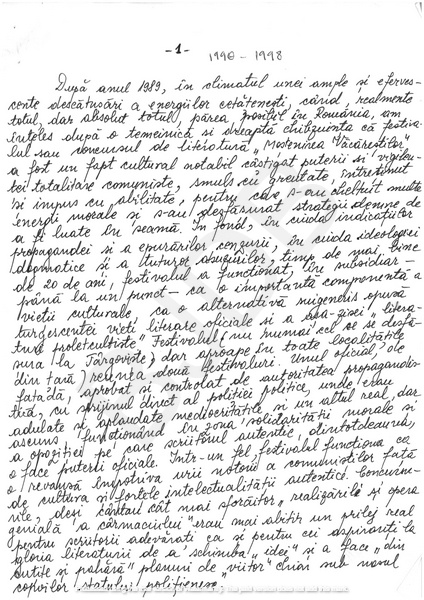 -1-
1990 - 1998
După anul 1989, în climatul unei ample și eferves-
cente descătușări a energiilor cetățenești, când, realmente
totul, dar absolut totul, părea posibil în România, am
înțeles după o temeinică și dreaptă chibzuință că festiva-
lul sau concursul de literatură „Moștenirea Văcăreștilor”
a fost un fapt cultural notabil câștigat puterii și vigilen-
tei totalitare comuniste, smuls cu greutate, întreținut
și impus cu abilitate, pentru care s-au cheltuit multe
energii morale și s-au desfășurat strategii demne de
a fi luate în seamă. În fond, în ciuda indicațiilor
propagandei și a epurărilor cenzurii, în ciuda ideologiei
dogmatice și a tuturor asupririlor, timp de mai bine
de 20 de ani, festivalul a funcționat, în subsidiar -
până la un punct - ca o importantă componentă a
vieții culturale, ca o alternativă suigeneris opusă
turgescentei vieți literare oficiale și a așa-zisei „litera-
turi proletcultiste”. Festivalul (nu numai cel ce se desfă-
șura la Târgoviște, dar aproape în toate localitățile
din țară) reunea două festivaluri. Unul oficial, de
fațadă, aprobat și controlat de autoritatea propagandis-
tică, cu sprijinul direct al poliției politice, unde erau
adulate și aplaudate mediocritățile și un altul real, dar
ascuns funcționând în zona solidarității morale și
a opoziției pe care scriitorul autentic, dintotdeauna,
o face puterii oficiale. Într-un fel, festivalul funcționa ca
o revanșă împotriva urii notorii a comuniștilor față
de cultură și forțele intelectualității autentice. Concursu-
rile, deși cântau cât mai sforăitor „realizările și opera
genială a cârmaciului” erau mai abitir un prilej real
pentru scriitorii adevărați ca și pentru cei aspiranți la
gloria literaturii de a „schimba idei” și a face „din
cuțite și pahară” planuri de viitor” chiar sub nasul
copoilor statului polițienesc.